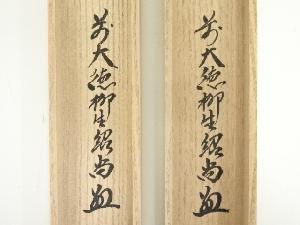 前大徳柳生紹尚
前大徳柳生紹尚